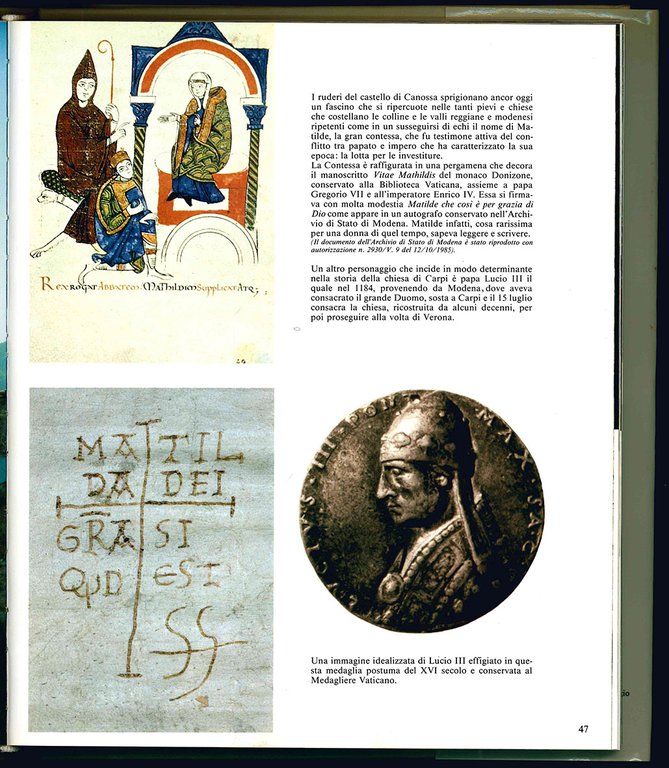 I ruderi del castello di Canossa sprigionano ancor oggi
un fascino che si ripercuote nelle tanti pievi e chiese
che costellano le colline e le valli reggiane e modenesi
ripetenti come in un susseguirsi di echi il nome di Ma-
tilde, la gran contessa, che fu testimone attiva del con-
flitto tra papato e impero che ha caratterizzato la sua
epoca: la lotta per le investiture.
La Contessa è raffigurata in una pergamena che decora
il manoscritto Vitae Mathildis del monaco Donizone,
conservato alla Biblioteca Vaticana, assieme a papa
Gregorio VII e all'imperatore Enrico IV. Essa si firma-
va con molta modestia Matilde che così è per grazia di
Dio come appare in un autografo conservato nell'Archi-
vio di Stato di Modena. Matilde infatti, cosa rarissima
per una donna di quel tempo, sapeva leggere e scrivere.
(Il documento dell'Archivio di Stato di Modena è stato riprodotto con
autorizzazione n. 2930/V. 9 del 12/10/1985).
Un altro personaggio che incide in modo determinante
nella storia della chiesa di Carpi è papa Lucio III il
quale nel 1184, provenendo da Modena, dove aveva
consacrato il grande Duomo, sosta a Carpi e il 15 luglio
consacra la chiesa, ricostruita da alcuni decenni, per
poi proseguire alla volta di Verona.
REX ROGAT ABBATEM. MATHILDIM SUPPLICAT ATQ;
MA TIL
DA DEI
GRA SI
QUD EST
LUCIUS · III · PONT MAX SAC
Una immagine idealizzata di Lucio III effigiato in que-
sta medaglia postuma del XVI secolo e conservata al
Medagliere Vaticano.
47